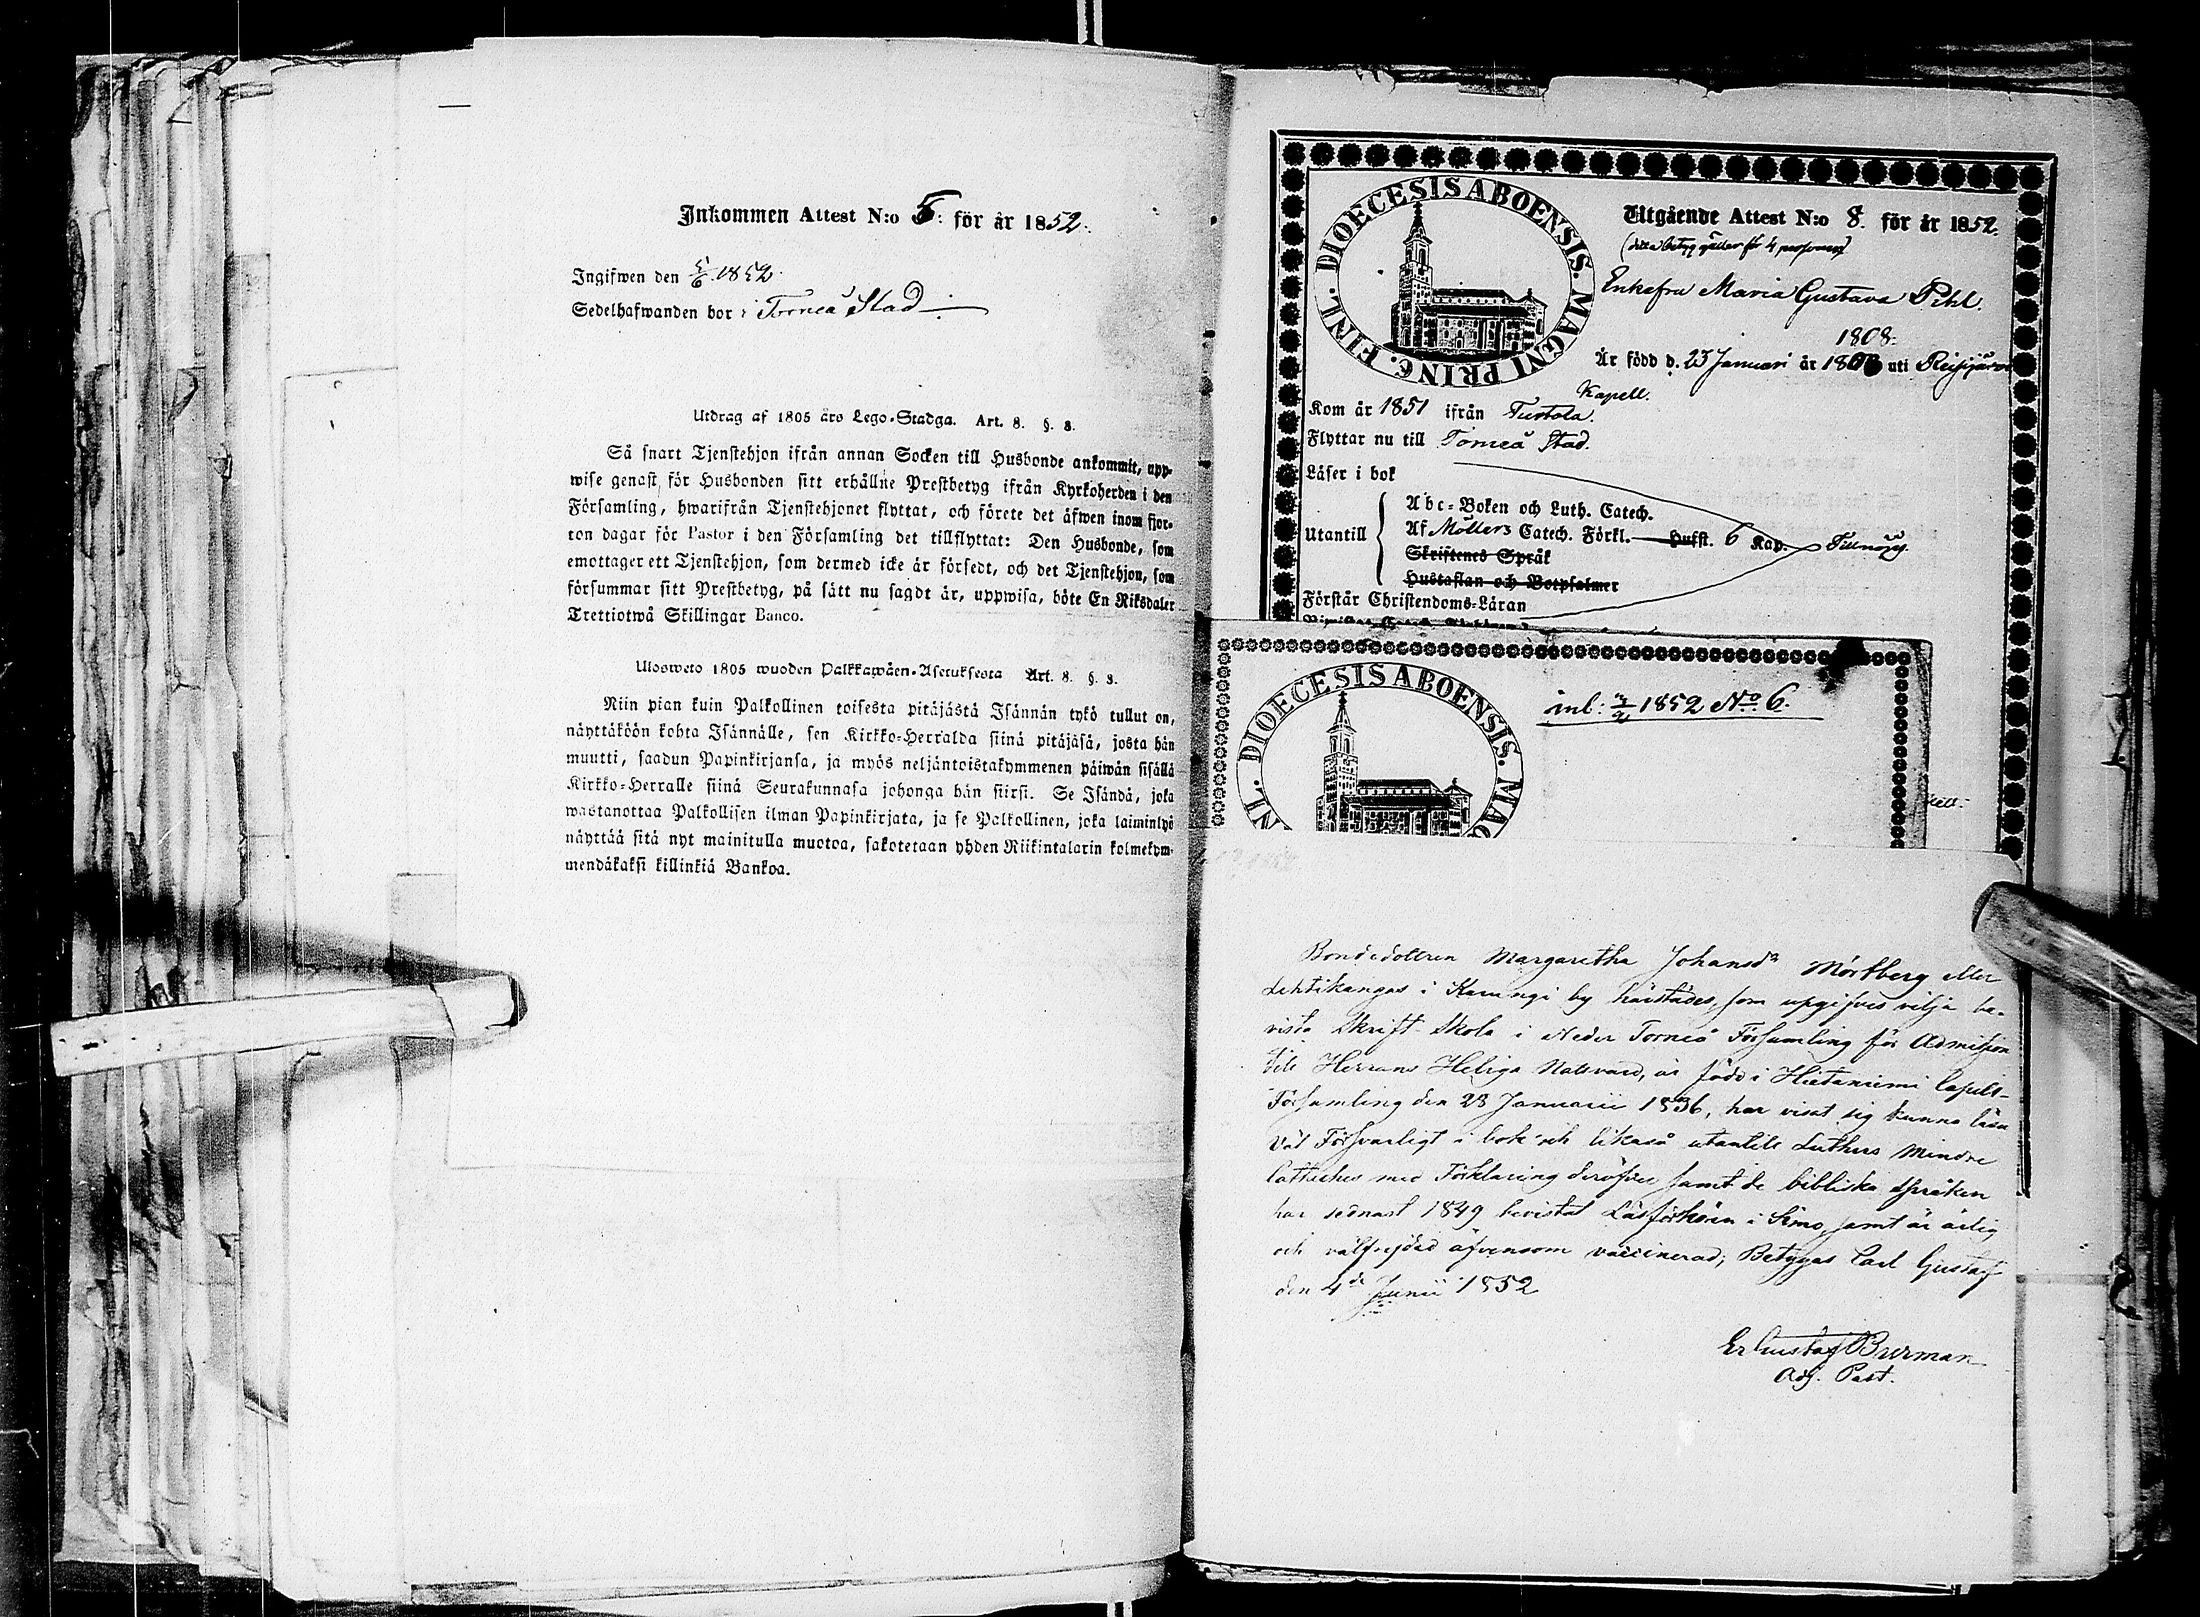 Inkommen Attest N:o 5: för år 1852.
Ingifwen den 5/6 1852.
Sedelhafwanden bor i Torneå Stad
Utdrag af 1805 års Lego-Stadga. Art. 8. §. 3.
Så snart Tjenstehjon ifrån annan Socken till Husbonde ankommit, upp-
wise genast för Husbonden sitt erhållne Prestbetyg ifrån Kyrkoherden i den
Församling, hwarifrån Tjenstehjonet flyttat, och förete det äfwen inom fjor-
ton dagar för Pastor i den Församling det tillflyttat: Den Husbonde, som
emottager ett Tjenstehjon, som dermed icke är försedt, och det Tjenstehjon, som
försummar sitt Prestbetyg, på sätt nu sagdt är, uppwisa, böte En Riksdaler
Trettiotwå Skillingar Banco.
Ulosweto 1805 wuoden Palkkawäen-Asetuksesta Art. 8. §. 3.
Niin pian kuin Palkollinen toisesta pitäjästä Isännän tykö tullut on,
näyttäköön kohta Isännälle, sen Kirkko-Herralda siinä pitäjäsä, josta hän
muutti, saadun Papinkirjansa, ja myös neljäntoistakymmenen päiwän sisällä
Kirkko-Herralle siinä Seurakunnasa johonga hän siirsi. Se Isändä, joka
wastanottaa Palkollisen ilman Papinkirjata, ja se Palkollinen, joka laiminlyö
näyttää sitä nyt mainitulla muotoa, sakotetaan yhden Riikintalarin kolmekym-
mendäkaksi killinkiä Bankoa.
DIOECESIS ABOENSIS. MAGNI PRINC. FINL.
Utgående Attest N:o 8. för år 1852.
(detta betyg gäller för 4 personer)
Enkefru Maria Gustava Pihl.
1808.
Är född d. 23 Januari år 180 uti Reisjärvi
Kapell.
Kom år 1851 ifrån
Flyttar nu till Torneå Stad.
Läser i bok
Utantill
Abc-Boken och Luth. Catech.
Af Möllers Catech. Förkl. Hufst. 6 Kap. Tillnöje.
Skriftenes Språk
Hustaflan och Botpsalmer
Förstår Christendoms-Läran
DIOECESIS ABOENSIS. MAG
NL.
inl: 1852 No 6.
Bondedottren Margaretha Johansdr Mörtberg eller
Lehtikangas i Karungi by härstädes, som upgifves vilja be-
vista Skrift Skola i Neder Torneå Församling för Admission
till Herrans Heliga Nattvard, är född i Hietaniemi Capells-
Församling den 23 Januarii 1836, har visat sig kunna läsa
väl Försvarligt i bok och likaså utantill Luthers Mindre
Catteches med Förklaring deröfver samt de bibliska språken
har sednast 1849 bevistat Läsförhören i Simo, samt är ärlig
och välfrejdad äfvensom vaccinerad; Betygas Carl Gustaf
den 4de Junii 1852
Er Gustaf Burman
Adj. Past.